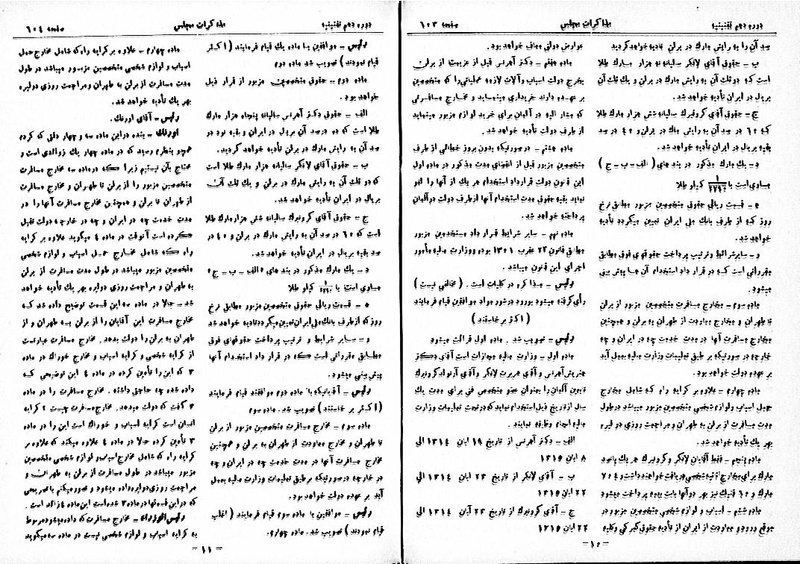 دوره دهم تقنینیه
مذاکرات مجلس
صفحه ۶۰۳
صد آن را به رایش مارك در برلن تادیه خواهد گردید
ب - حقوق آقای لانگر سالیانه نه هزار مارك طلا
است که دو ثلث آن به رایش مارك در برلن و یك ثلث آن
بریال در ایران تأدیه خواهد شد.
ج - حقوق آقای کرونبرك سالیانه شش هزار مارك طلا
که ۶۰ در صد آن به رایش مارك در برلن و ۴۰ در صد
بقیه بریال در ایران تأدیه خواهد شد.
د - یك مارك مذکور در بند های ( الف - ب - ج )
مساوی است با کیلو طلا
ه - قیمت ریالی حقوق متخصصین مزبور مطابق نرخ
روز که از طرف بانك ملی ایران تعیین میگردد تأدیه
خواهد شد.
و - سایر شرایط و ترتیب پرداخت حقوقهای فوق مطابق
مقرراتی است که در قرار داد استخدام آن ها پیش بینی
میشود.
ماده سوم - مخارج مسافرت متخصصین مزبور از برلن
تا طهران و مخارج معاودت از طهران به برلن و همچنین
مخارج مسافرت آنها در مدت خدمت چه در ایران و چه در
خارجه در صورتیکه بر طبق تعلیمات وزارت مالیه بعمل آید
بر عهده دولت خواهد بود.
ماده چهارم - علاوه بر کرایه راه که شامل مخارج
حمل اسباب و لوازم شخصی متخصصین مزبور میباشد در طول
مدت مسافرت از برلن به طهران و مراجعت روزی دو لیره
بهر یك تأدیه خواهد شد.
ماده پنجم - فقط آقایان لانگر و کرونبرك هر يك پانصد
مارك برای مخارج تهیه شخصی دریافت خواهند داشت
ماده ششم - اسباب و لوازم شخصی متخصصین مزبور در
موقع ورود و معاودت از ایران از تأدیه حقوق گمرکی و کلیه
عوارض دولتی معاف خواهد بود.
ماده هفتم - دکتر آهرنس قبل از عزیمت از برلن
بخرج دولت اسباب و آلات لازمه عملیاتی را که متخصصین
بر عهده دارند خریداری مینماید و مخارج مسافرتی
که مشار الیه در آلمان برای خرید لوازم مزبور مینماید
از طرف دولت تأدیه خواهد شد.
ماده هشتم - در صورتیکه بدون بروز خطائی از طرف
متخصصین مزبور قبل از انقضای مدت مذکور در ماده اول
این قانون دولت قرارداد استخدام هر یك از آنها را لغو
نماید بقیه حقوق مدت استخدام آنها از طرف دولت در آلمان
پرداخته خواهد شد.
ماده نهم - سایر شرایط قرار داد مستخدمین مزبور
مطابق قانون ۲۳ عقرب ۱۳۰۱ بوده و وزارت مالیه مأمور
اجرای این قانون میباشد.
رئیس - مذاکره در کلیات است. ( مخالفی نیست )
رأی گرفته میشود بورود در شور مواد موافقین قیام فرمایند
( اکثر برخاستند )
رئیس - تصویب شد. ماده اول قرائت میشود
ماده اول - وزارت مالیه مجاز است آقای دکتر
هنریش آهرنس و آقای هربرت لانگر و آقای آرنولد کرونبرك
تبعه آلمان را بعنوان عضو متخصص فنی برای مدت يك
سال از تاریخ ذیل استخدام نماید که در تحت تعلیمات وزارت
مالیه انجام وظیفه نمایند.
الف - دکتر آهرنس از تاریخ ۱۹ آبان ۱۳۱۴ الی
۸ آبان ۱۳۱۵
ب - آقای لانگر از تاریخ ۲۳ آبان ۱۳۱۴ الی
۲۲ آبان ۱۳۱۵
ج - آقای کرونبرك از تاریخ ۲۳ آبان ۱۳۱۴ الی
۲۲ آبان ۱۳۱۵
- ۱۰ -
دوره دهم تقنینیه
مذاکرات مجلس
صفحه ۶۰۴
رئیس - موافقین با ماده یك قیام فرمایند ( اکثر
قیام نمودند ) تصویب شد ماده دوم
ماده دوم - حقوق متخصصین مزبور از قرار ذیل
خواهد بود.
الف - حقوق دکتر آهرنس سالیانه پنجاه هزار مارك
طلا است که ده در صد آن بریال در ایران و بقیه نود در
صد آن به رایش مارك در برلن تأدیه خواهد گردید.
ب - حقوق آقای لانگر سالیانه نه هزار مارك طلا است
که دو ثلث آن به رایش مارك در برلن و يك ثلث آن
بریال در ایران تأدیه خواهد شد.
ج - حقوق آقای کرونبرك سالیانه شش هزار مارك طلا
است که ۶۰ در صد آن به رایش مارك در برلن و ۴۰ در
صد بقیه بریال در ایران تأدیه خواهد شد.
د - يك مارك مذکور در بند های « الف - ب - ج »
مساوی است با کیلو طلا
ه - قیمت ریالی حقوق متخصصین مزبور مطابق نرخ
روز که از طرف بانك ملی ایران تعیین میگردد تادیه خواهد شد
و - سایر شرایط و ترتیب پرداخت حقوقهای فوق
مطابق مقرراتی است که در قرار داد استخدام آنها
پیش بینی میشود.
رئیس - آقایانیکه با ماده دوم موافقند قیام فرمایند
( اکثر برخاستند ) تصویب شد. ماده سوم
ماده سوم - مخارج مسافرت متخصصین مزبور از برلن
تا طهران و مخارج معاودت از طهران به برلن و همچنین
مخارج مسافرت آنها در مدت خدمت چه در ایران و چه
در خارجه در صورتیکه بر طبق تعلیمات وزارت مالیه بعمل
آید بر عهده دولت خواهد بود.
رئیس - موافقین با ماده سوم قیام فرمایند ( اغلب
قیام نمودند ) تصویب شد. ماده چهارم.
ماده چهارم - علاوه بر کرایه راه که شامل مخارج حمل
اسباب و لوازم شخصی متخصصین مزبور میباشد در طول
مدت مسافرت از برلن به طهران و مراجعت روزی دو لیره
بهر یك تأدیه خواهد شد.
رئیس - آقای اورنك.
اورنك - بنده در این ماده سه و چهار دقتی که کردم
همچو بنظرم رسید که در ماده چهار یك زوائدی است و
محتاج بآن نیستیم زیرا که در ماده سه مخارج مسافرت
متخصصین مزبور را از برلن تا طهران و مخارج مسافرت
از طهران تا برلن و همچنین مخارج مسافرت آنها را در
مدت خدمت چه در ایران و چه در خارجه دولت تقبل
کرده است آنوقت در ماده ۴ میگوید علاوه بر کرایه
راه که شامل مخارج حمل اسباب و لوازم شخصی
متخصصین مزبور میباشد در طول مدت مسافرت از برلن
به طهران و مراجعت روزی دو لیره بهر یك تأدیه خواهد
شد - حالا در ماده سه این قسمت توضیح داده شد که
مخارج مسافرت این آقایان را از برلن به طهران و از
طهران به برلن را دولت بدهد. مخارج مسافرت عبارتست
از کرایه شخصی و کرایه اسباب و مخارج خوراك در ماده
۳ که این را تأمین کرده در ماده ۴ این توضیحی که
داده شده چه حاجتی داشته. مخارج مسافرت را در ماده
۳ گفت که دولت میدهد. مخارج مسافرت چیست ؟ کرایه
انسان است کرایه اسباب و خوراك است این را در ماده
۳ تأمین کرده حالا در ماده ۴ علاوه میکند که علاوه بر
کرایه راه که شامل مخارج اسباب و لوازم شخصی متخصصین
مزبور میباشد در طول مسافرت از برلن به طهران و
مراجعت روزی دو لیره داده میشود و تصور میکنم با تصریحی
که در این قسمتها در ماده ۳ شده است این ماده ۴ زائد است.
رئیس الوزراء - مخارج مسافرت که داده میشود مربوط
به کرایه اسباب و لوازم شخصی نیست در ماده سه میگوید
- ۱۱ -